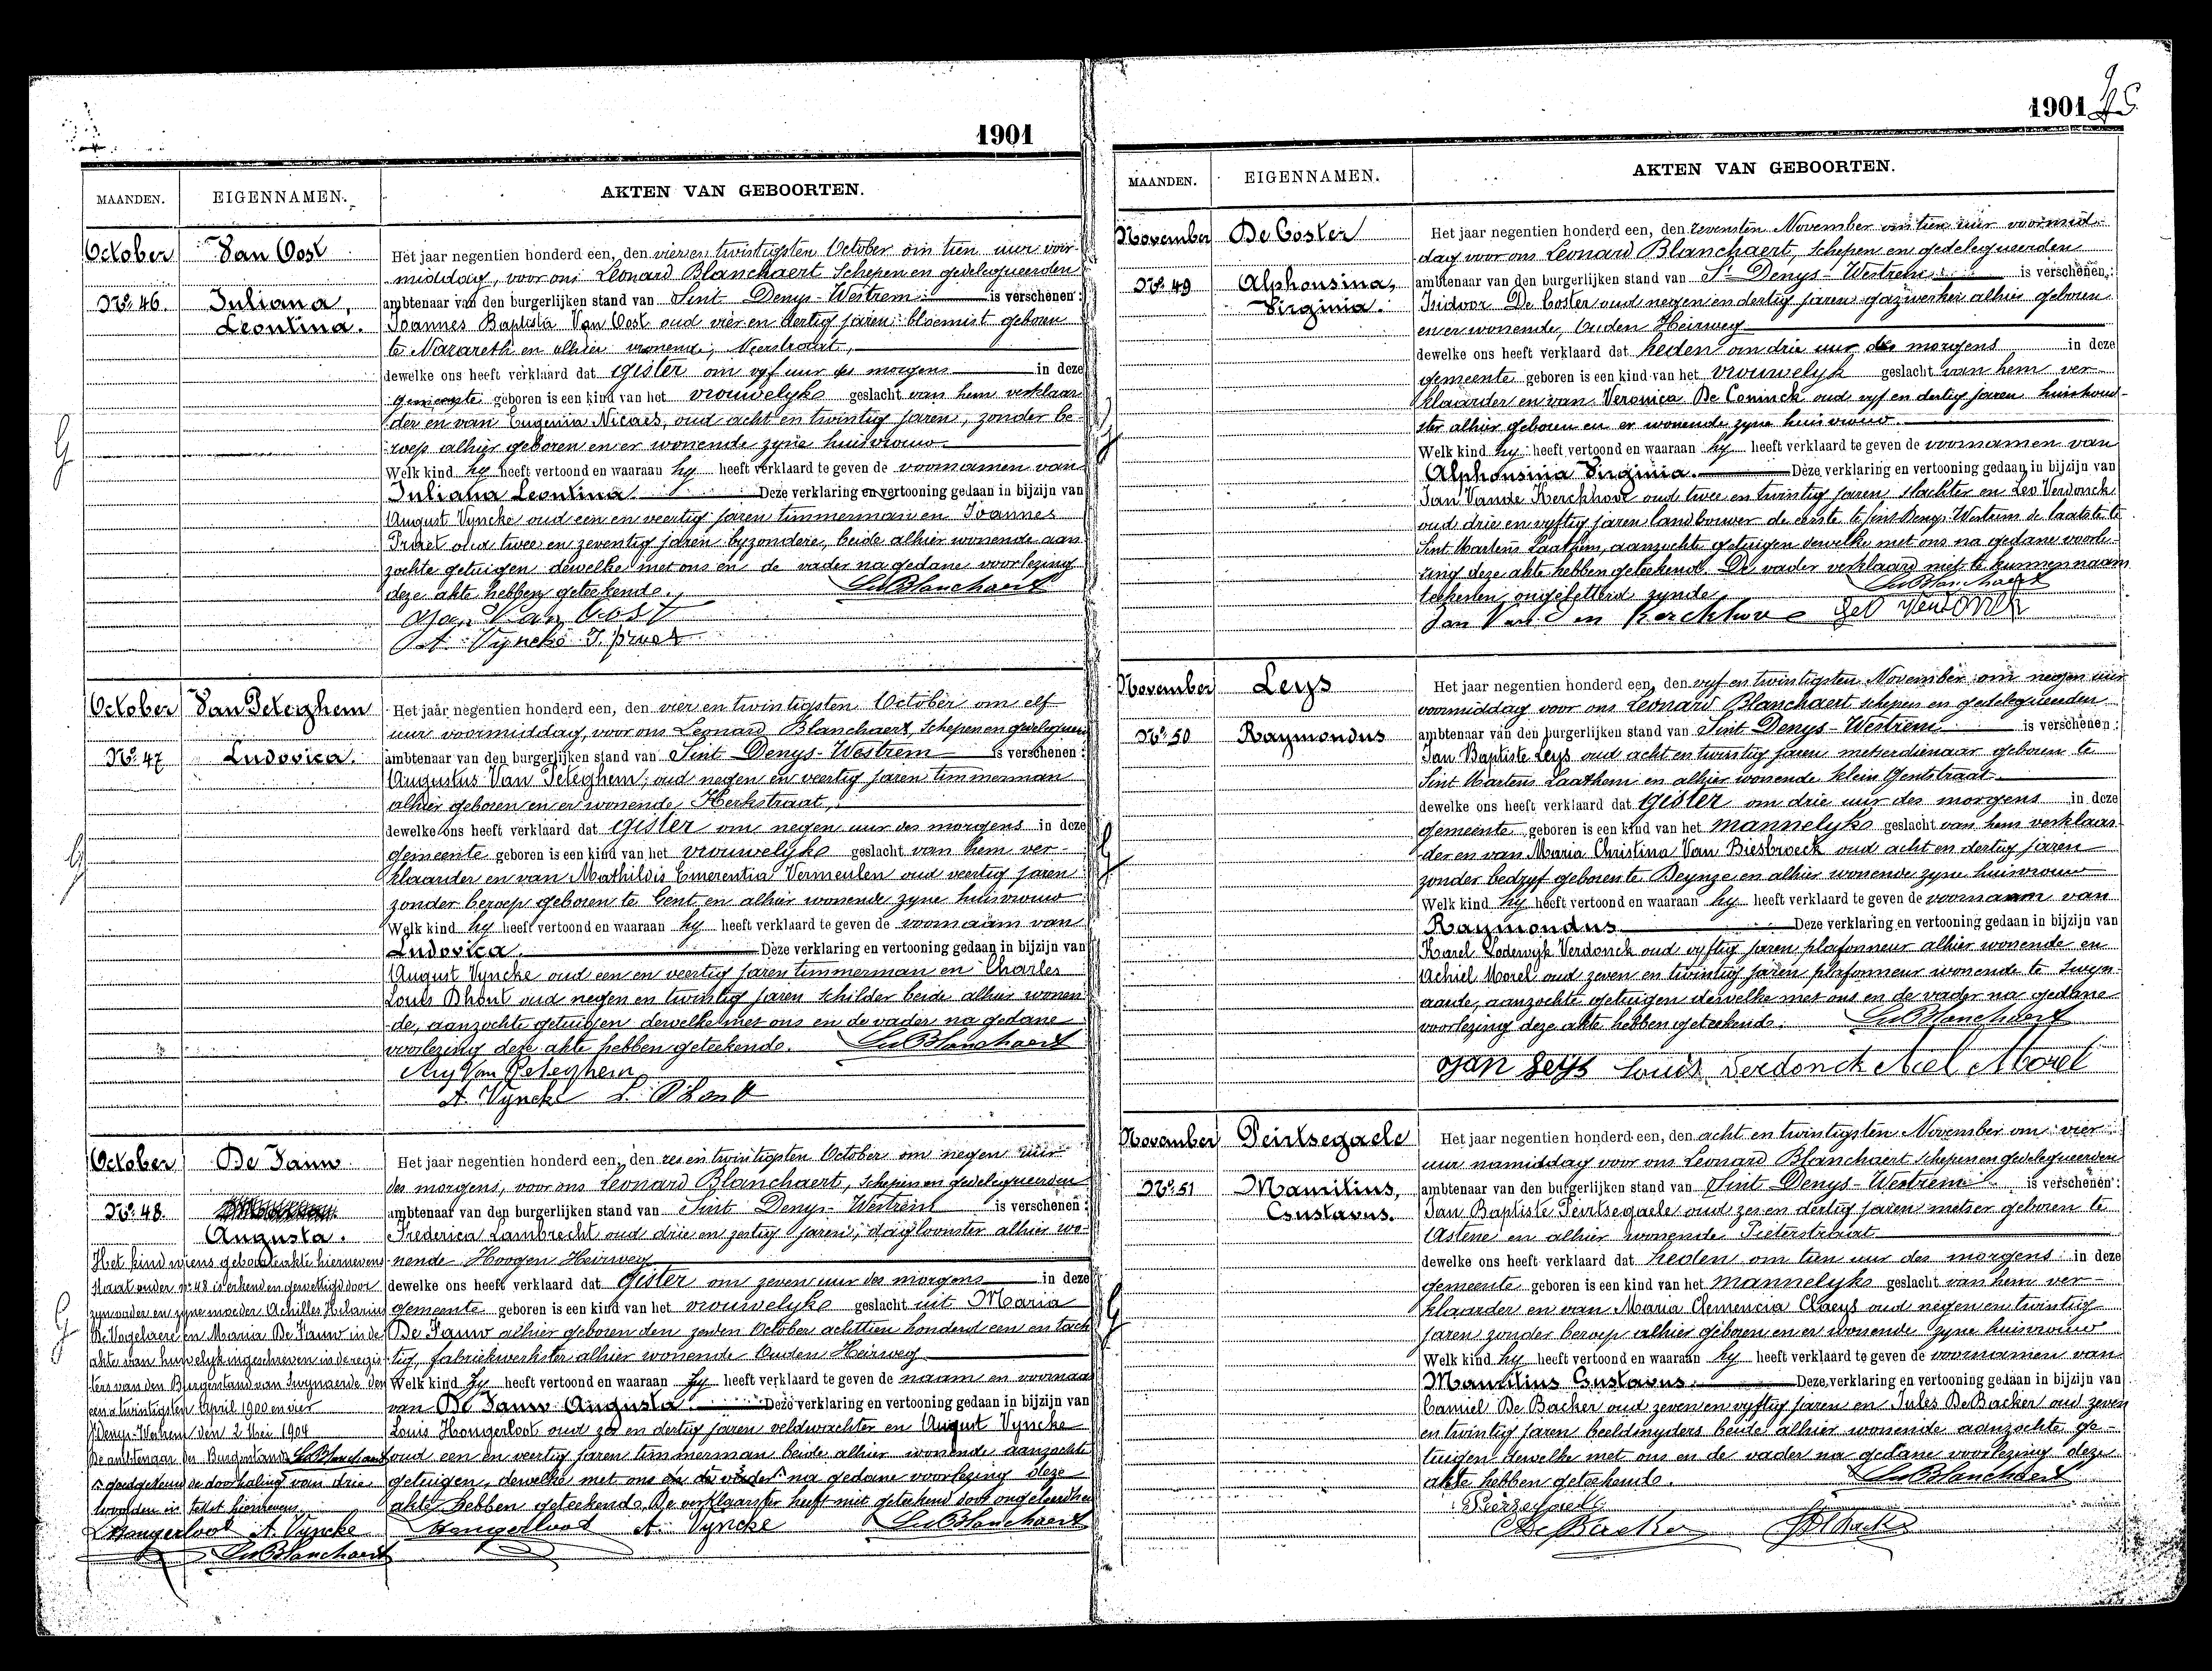 1901
MAANDEN.
EIGENNAMEN.
AKTEN VAN GEBOORTEN.
October
Van Oost
No. 46.
Juliana,
Leontina.
Het jaar negentien honderd een, den vier en twintigsten October om tien uur voor-
middag, voor ons Leonard Blanchaert Schepen en gedelegueerden
ambtenaar van den burgerlijken stand van Sint Denys-Westrem is verschenen:
Joannes Baptista Van Oost oud vier en dertig jaren bloemist geboren
te Nazareth en alhier wonende, Veerstraat,
dewelke ons heeft verklaard dat gister om vyf uur des morgens in deze
gemeente geboren is een kind van het vrouwelyke geslacht van hem verklaar-
der en van Eugenia Nicaes, oud acht en twintig jaren, zonder be-
roep alhier geboren en er wonende zyne huisvrouw
Welk kind hy heeft vertoond en waaraan hy heeft verklaard te geven de voornamen van
Juliana Leontina. Deze verklaring en vertooning gedaan in bijzijn van
August Vyncke oud een en veertig jaren timmerman en Joannes
Pruet oud twee en zeventig jaren byzondere, beide alhier wonende aan-
zochte getuigen dewelke met ons en de vader na gedane voorlezing
deze akte hebben geteekend. LeBlanchaert
Jan Van Oost
A. Vyncke J. pruet
October
Van Peteghem
No. 47
Ludovica.
Het jaar negentien honderd een, den vier en twintigsten October om elf
uur voormiddag, voor ons Leonard Blanchaert, Schepen en gedelegueerden
ambtenaar van den burgerlijken stand van Sint Denys-Westrem is verschenen:
Augustus Van Peteghem, oud negen en veertig jaren timmerman
alhier geboren en er wonende Kerkstraat,
dewelke ons heeft verklaard dat gister om negen uur des morgens in deze
gemeente geboren is een kind van het vrouwelyke geslacht van hem ver-
klaarder en van Mathildis Emerentia Vermeulen oud veertig jaren
zonder beroep geboren te Gent en alhier wonende zyne huisvrouw
Welk kind hy heeft vertoond en waaraan hy heeft verklaard te geven de voornaam van
Ludovica. Deze verklaring en vertooning gedaan in bijzijn van
August Vyncke oud een en veertig jaren timmerman en Charles
Louis Dhont oud negen en twintig jaren schilder beide alhier wonen-
de, aanzochte getuigen dewelke met ons en de vader na gedane
voorlezing deze akte hebben geteekend. LeBlanchaert
Aug Van Peteghem
A. Vyncke L. Dhont
October
De Pauw
No. 48
Augusta.
Het kind wiens geboorteakte hiernevens
staat onder no. 48 is erkend en gewettigd door
zyn vader en zyne moeder Achilles Hilarius
De Vogelaere en Maria De Pauw in de
akte van huwelyk ingeschreven in de regis-
ters van den Burgerstand van Swynaerde den
een en twintigsten April 1900 en vier
St Denys-Westrem den 2 Mei 1904
De ambtenaar des Burgerstands LeBlanchaert
goedgekeurd de doorhaling van drie
woorden in text hiernevens
LHongerloot A. Vyncke
LeBlanchaert
Het jaar negentien honderd een, den zes en twintigsten October om negen uur
des morgens, voor ons Leonard Blanchaert, schepen en gedelegueerden
ambtenaar van den burgerlijken stand van Sint Denys-Westrem is verschenen:
Frederica Lambrecht oud drie en zestig jaren, dagloonster alhier wo-
nende Hoogen Heirweg
dewelke ons heeft verklaard dat gister om zeven uur des morgens in deze
gemeente geboren is een kind van het vrouwelyke geslacht uit Maria
De Pauw alhier geboren den zesden October achttien honderd een en tach-
tig, fabriekwerkster alhier wonende Ouden Heirweg
Welk kind zy heeft vertoond en waaraan zy heeft verklaard te geven de naam en voornaam
van De Pauw Augusta. Deze verklaring en vertooning gedaan in bijzijn van
Louis Hongerloot oud zes en dertig jaren veldwachter en August Vyncke
oud een en veertig jaren timmerman beide alhier wonende aanzochte
getuigen, dewelke met ons en de vader na gedane voorlezing deze
akte hebben geteekend. De verklaarster heeft niet geteekend door ongeleerdheid
LHongerloot A. Vyncke LeBlanchaert
1901
MAANDEN.
EIGENNAMEN.
AKTEN VAN GEBOORTEN.
November
De Coster
No. 49
Alphonsina,
Virginia.
Het jaar negentien honderd een, den zevensten November om tien uur voormid-
dag voor ons Leonard Blanchaert, Schepen en gedelegueerden
ambtenaar van den burgerlijken stand van St Denys-Westrem is verschenen:
Isidoor De Coster oud negen en dertig jaren gazwerker alhier geboren
en er wonende, Ouden Heirweg
dewelke ons heeft verklaard dat heden om drie uur des morgens in deze
gemeente geboren is een kind van het vrouwelyk geslacht van hem ver-
klaarder en van Veronica De Coninck oud vyf en dertig jaren huishoud-
ster alhier geboren en er wonende zyne huisvrouw.
Welk kind hy heeft vertoond en waaraan hy heeft verklaard te geven de voornamen van
Alphonsina Virginia. Deze verklaring en vertooning gedaan in bijzijn van
Jan Vande Kerckhove oud twee en twintig jaren slachter en Leo Verdonck
oud drie en vyftig jaren landbouwer de eerste te Sint Denys-Westrem de laatste te
Sint Martens Laathem, aanzochte getuigen dewelke met ons na gedane voorle-
zing deze akte hebben geteekend. De vader verklaard niet te kunnen naam-
teekenen ongeletterd zynde. LeBlanchaert
Jan Van Den Kerckhove Leo Verdonck
November
Leys
No. 50
Raymondus
Het jaar negentien honderd een, den vyf en twintigsten November om negen uur
voormiddag voor ons Leonard Blanchaert schepen en gedelegueerden
ambtenaar van den burgerlijken stand van Sint Denys-Westrem is verschenen:
Jan Baptiste Leys oud acht en twintig jaren metserdienaar geboren te
Sint Martens Laathem en alhier wonende klein Gentstraat
dewelke ons heeft verklaard dat gister om drie uur des morgens in deze
gemeente geboren is een kind van het mannelyke geslacht van hem verklaar-
der en van Maria Christina Van Biesbroeck oud acht en dertig jaren
zonder bedryf geboren te Deynze en alhier wonende zyne huisvrouw
Welk kind hy heeft vertoond en waaraan hy heeft verklaard te geven de voornaam van
Raymondus Deze verklaring en vertooning gedaan in bijzijn van
Karel Lodewyk Verdonck oud vyftig jaren plafonneur alhier wonende en
Achiel Morel oud zeven en twintig jaren plafonneur wonende te Swyn-
aarde, aanzochte getuigen dewelke met ons en de vader na gedane
voorlezing deze akte hebben geteekend. LeBlanchaert
Jan Leys Louis Verdonck Aciel Morel
November
Peirtsegaele
No. 51
Mauritius,
Gustavus.
Het jaar negentien honderd een, den acht en twintigsten November om vier
uur namiddag voor ons Leonard Blanchaert schepen en gedelegueerden
ambtenaar van den burgerlijken stand van Sint Denys-Westrem is verschenen:
Jan Baptiste Peirtsegaele oud zes en dertig jaren metser geboren te
Astene en alhier wonende Pieterstraat
dewelke ons heeft verklaard dat heden om tien uur des morgens in deze
gemeente geboren is een kind van het mannelyke geslacht van hem ver-
klaarder en van Maria Clemencia Claeys oud negen en twintig
jaren zonder beroep alhier geboren en er wonende zyne huisvrouw
Welk kind hy heeft vertoond en waaraan hy heeft verklaard te geven de voornamen van
Mauritius Gustavus. Deze verklaring en vertooning gedaan in bijzijn van
Camiel De Backer oud zeven en vyftig jaren en Jules De Backer oud zeven
en twintig jaren beeldsnyders beide alhier wonende aanzochte ge-
tuigen dewelke met ons en de vader na gedane voorlezing deze
akte hebben geteekend. LeBlanchaert
De Backer